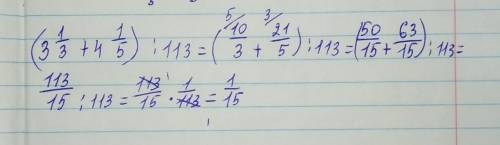 (3 1/3 + 4 1/5) : 113 = (⁵⁄10/3 + ³⁄21/5) : 113 = (50/15 + 63/15) : 113 =
113/15 : 113 = 113/15 · 1/113 = 1/15